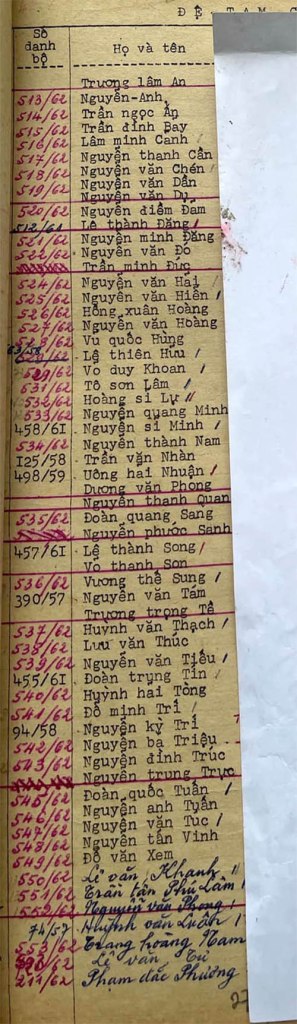 ĐỆ TAM C
Số danh bộ Họ và tên
Trương lâm An
513/62 Nguyễn-Anh
514/62 Trần ngọc Ẩn
515/62 Trần đình Bay
516/62 Lâm minh Cảnh
517/62 Nguyễn thanh Cần
518/62 Nguyễn văn Chén
519/62 Nguyễn văn Dần
Nguyễn văn Dụ
520/62 Nguyễn điềm Đạm
512/61 Lê thành Đăng
521/62 Nguyễn minh Đăng
522/62 Nguyễn văn Đỏ
Trần minh Đức
524/62 Nguyễn văn Hai
525/62 Nguyễn văn Hiền
526/62 Hồng xuân Hoàng
527/62 Nguyễn văn Hoàng
528/62 Vũ quốc Hùng
63/58 Lê thiên Hữu
Võ duy Khoan
531/62 Tô sơn Lâm
532/62 Hoàng sĩ Lự
533/62 Nguyễn quang Minh
458/61 Nguyễn sĩ Minh
534/62 Nguyễn thành Nam
125/58 Trần văn Nhàn
498/59 Uông hai Nhuận
Dương văn Phong
Nguyễn thanh Quan
535/62 Đoàn quang Sang
Nguyễn phước Sanh
457/61 Lê thành Song
Võ thanh Sơn
536/62 Vương thế Sung
390/57 Nguyễn văn Tám
Trương trọng Tê
537/62 Huỳnh văn Thạch
538/62 Lưu văn Thúc
539/62 Nguyễn văn Tiếu
455/61 Đoàn trung Tín
540/62 Huỳnh hai Tòng
541/62 Đỗ minh Trí
94/58 Nguyễn kỳ Trí
542/62 Nguyễn bá Triệu
543/62 Nguyễn đình Trúc
Nguyễn trung Trực
545/62 Đoàn quốc Tuấn
546/62 Nguyễn anh Tuấn
547/62 Nguyễn văn Tục
548/62 Nguyễn tấn Vinh
549/62 Đỗ văn Xem
550/62 Lê văn Khanh
551/62 Trần tấn Phú Lâm
552/62 Nguyễn văn Phong
74/57 Huỳnh văn Luân
553/62 Trang hoàng Nam
Lê văn Tư
211/62 Phạm đắc Phương